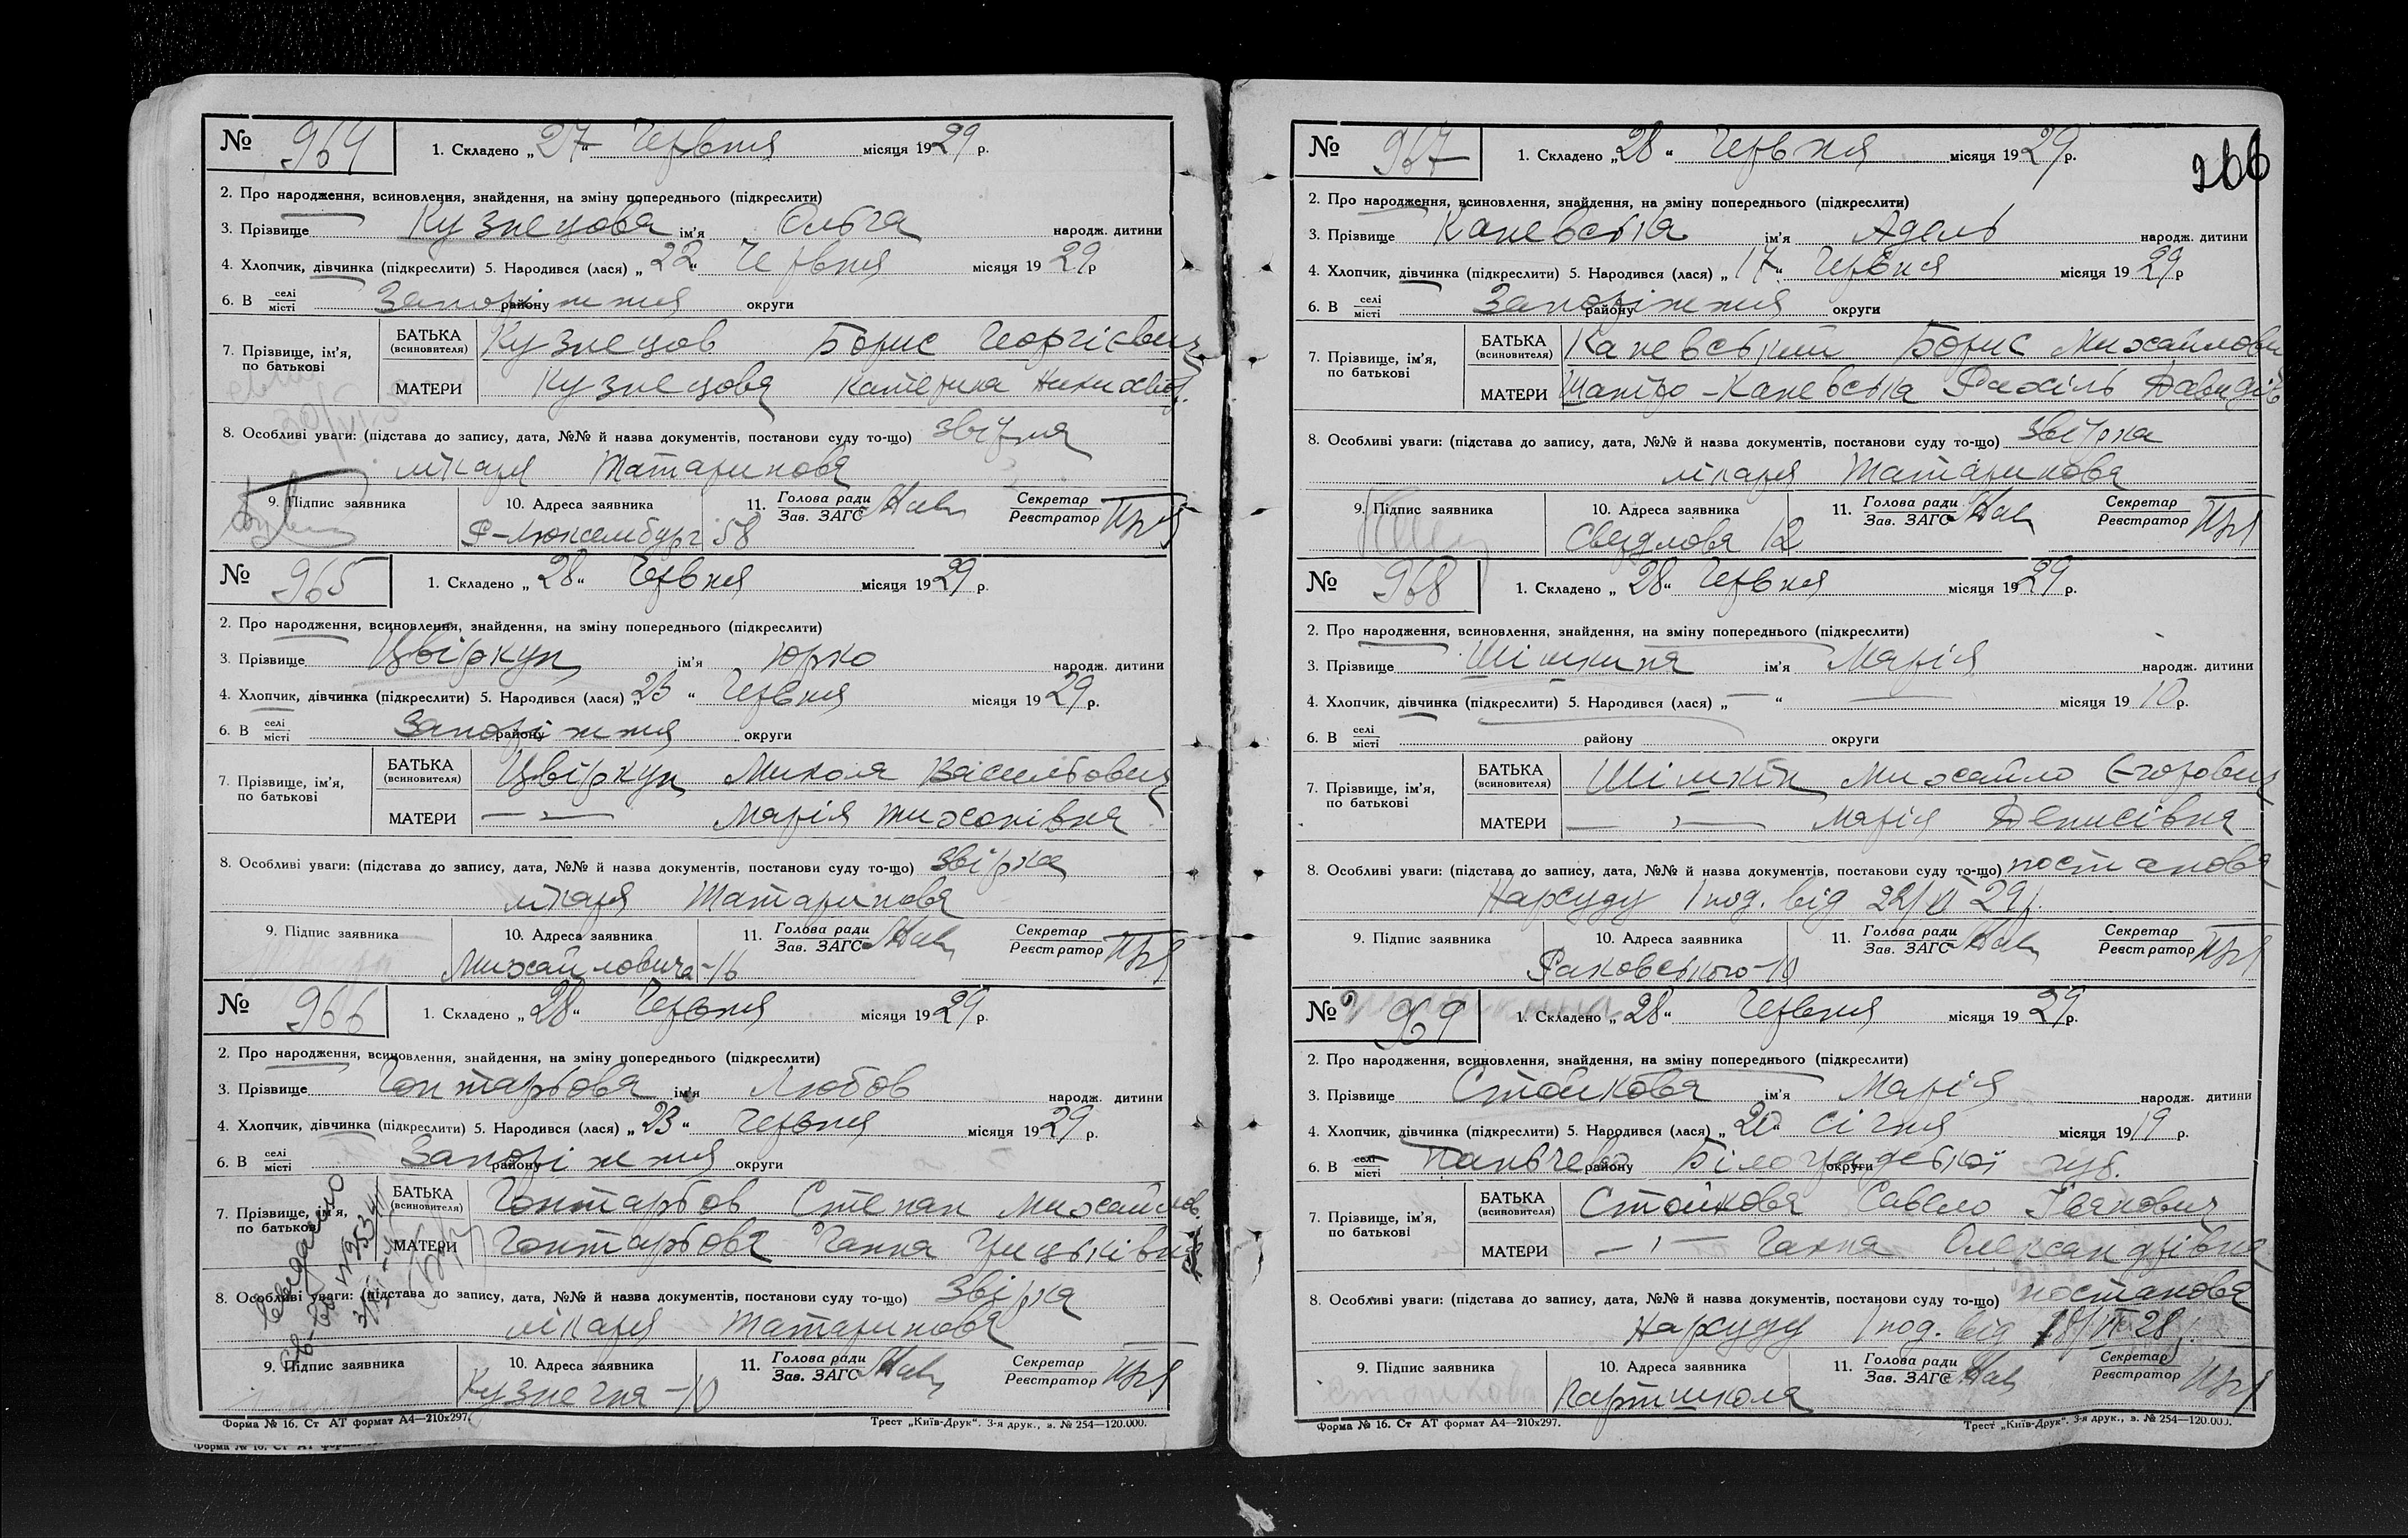 № 964 1. Складено „27“ Червня місяця 1929 р.
2. Про народження, всиновлення, знайдення, на зміну попереднього (підкреслити)
3. Прізвище Кузнецова ім'я Ольга народж. дитини
4. Хлопчик, дівчинка (підкреслити) 5. Народився (лася) „22“ Червня місяця 1929 р
6. В селі місті Запоріжжя району округи
7. Прізвище, ім'я, по батькові
БАТЬКА (всиновителя) Кузнецов Борис Георгієвич
МАТЕРИ Кузнецова Катерина
8. Особливі уваги: (підстава до запису, дата, №№ й назва документів, постанови суду то-що) звірка
лікаря Татаринова
9. Підпис заявника 10. Адреса заявника 11. Голова ради Зав. ЗАГС Секретар Реєстратор
Р-Люксембург 58
№ 965 1. Складено „28“ Червня місяця 1929 р.
2. Про народження, всиновлення, знайдення, на зміну попереднього (підкреслити)
3. Прізвище Цвіркун ім'я Юрко народж. дитини
4. Хлопчик, дівчинка (підкреслити) 5. Народився (лася) „23“ Червня місяця 1929 р.
6. В селі місті Запоріжжя району округи
7. Прізвище, ім'я, по батькові
БАТЬКА (всиновителя) Цвіркун Микола Васильович
МАТЕРИ — „ — Марія Тихонівна
8. Особливі уваги: (підстава до запису, дата, №№ й назва документів, постанови суду то-що) звірка
лікаря Татаринова
9. Підпис заявника 10. Адреса заявника 11. Голова ради Зав. ЗАГС Секретар Реєстратор
Михайловича-16
№ 966 1. Складено „28“ Червня місяця 1929 р.
2. Про народження, всиновлення, знайдення, на зміну попереднього (підкреслити)
3. Прізвище Гонтарьова ім'я Любов народж. дитини
4. Хлопчик, дівчинка (підкреслити) 5. Народився (лася) „23“ Червня місяця 1929 р.
6. В селі місті Запоріжжя району округи
7. Прізвище, ім'я, по батькові
БАТЬКА (всиновителя) Гонтарьов Степан Михайлов.
МАТЕРИ Гонтарьова Ганна Грицьківна
8. Особливі уваги: (підстава до запису, дата, №№ й назва документів, постанови суду то-що) Звірка
лікаря Татаринова
9. Підпис заявника 10. Адреса заявника 11. Голова ради Зав. ЗАГС Секретар Реєстратор
Кузнечня-10
Форма № 16. Ст АТ формат А4—210х297. Трест „Київ-Друк“. 3-я друк., з. № 254—120.000.
266
№ 967 1. Складено „28“ Червня місяця 1929 р.
2. Про народження, всиновлення, знайдення, на зміну попереднього (підкреслити)
3. Прізвище Каневська ім'я Адель народж. дитини
4. Хлопчик, дівчинка (підкреслити) 5. Народився (лася) „17“ Червня місяця 1929 р
6. В селі місті Запоріжжя району округи
7. Прізвище, ім'я, по батькові
БАТЬКА (всиновителя) Каневський Борис Михайлович
МАТЕРИ Шапіро-Каневська Рахіль Давидів
8. Особливі уваги: (підстава до запису, дата, №№ й назва документів, постанови суду то-що) звірка
лікаря Татаринова
9. Підпис заявника 10. Адреса заявника 11. Голова ради Зав. ЗАГС Секретар Реєстратор
Свердлова 12
№ 968 1. Складено „28“ Червня місяця 1929 р.
2. Про народження, всиновлення, знайдення, на зміну попереднього (підкреслити)
3. Прізвище Шішкіна ім'я Марія народж. дитини
4. Хлопчик, дівчинка (підкреслити) 5. Народився (лася) „—“ — місяця 1910 р.
6. В селі місті району округи
7. Прізвище, ім'я, по батькові
БАТЬКА (всиновителя) Шішкін Михайло Єгорович
МАТЕРИ — „ — Марія Денисівна
8. Особливі уваги: (підстава до запису, дата, №№ й назва документів, постанови суду то-що) постанова
Нарсуду 1 под. від 22/VI 29 р.
9. Підпис заявника 10. Адреса заявника 11. Голова ради Зав. ЗАГС Секретар Реєстратор
Раковського-10
№ 969 1. Складено „28“ Червня місяця 1929 р.
2. Про народження, всиновлення, знайдення, на зміну попереднього (підкреслити)
3. Прізвище Стойкова ім'я Марія народж. дитини
4. Хлопчик, дівчинка (підкреслити) 5. Народився (лася) „20“ січня місяця 1919 р.
6. В селі місті Паньчево району Білоградської округи губ.
7. Прізвище, ім'я, по батькові
БАТЬКА (всиновителя) Стойкова Савело Іванович
МАТЕРИ — „ — Ганна Олександрівна
8. Особливі уваги: (підстава до запису, дата, №№ й назва документів, постанови суду то-що) постанова
Нарсуду 1 под. від 18/VI 28
9. Підпис заявника 10. Адреса заявника 11. Голова ради Зав. ЗАГС Секретар Реєстратор
Партшкола
Форма № 16. Ст АТ формат А4—210х297. Трест „Київ-Друк“. 3-я друк., з. № 254—120.000.